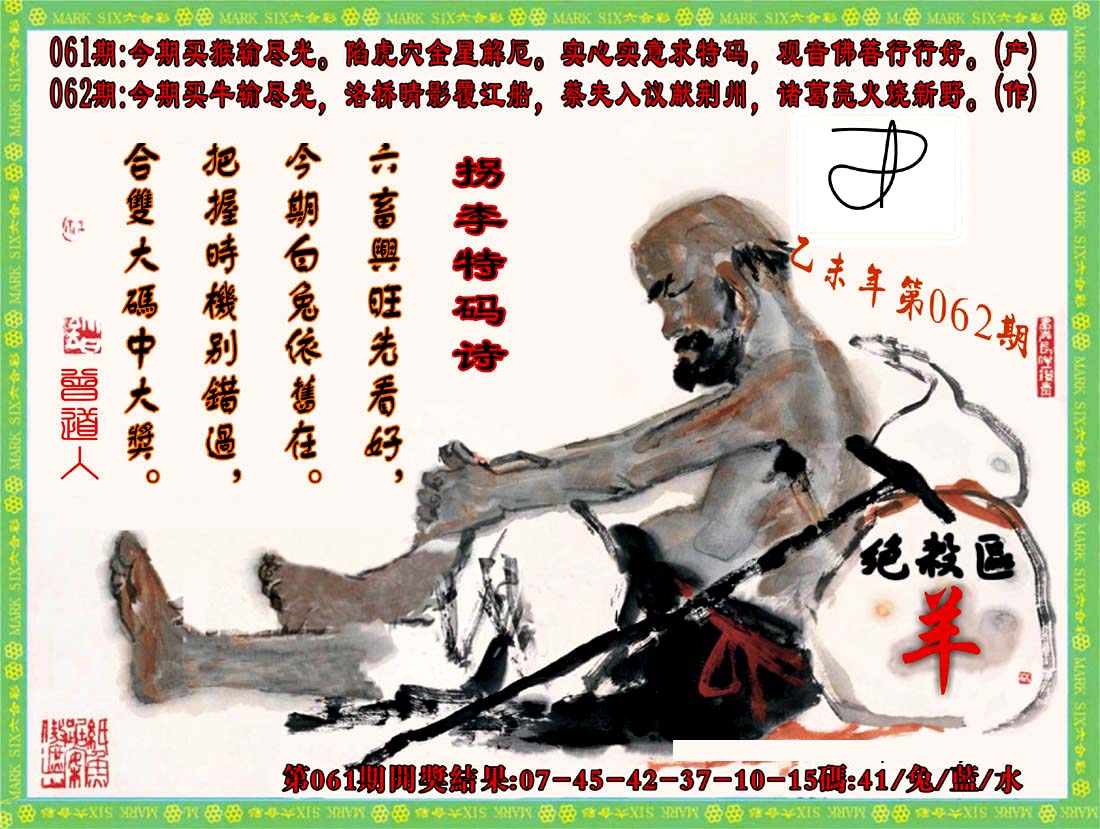 MARK SIX六合彩
061期:今期买猴输尽光。陷虎穴金星解厄。实心实意求特码，观音佛菩行行好。(产)
062期:今期买牛输尽光，洛桥晴影覆江船，蔡夫入议献荆州，诸葛亮火烧新野。(作)
乙未年第062期
拐李特码诗
六畜興旺先看好，
今期白兔依舊在。
把握時機别錯過，
合雙大碼中大獎。
曾道人
绝殺區
羊
第061期開獎結果:07-45-42-37-10-15碼:41/兔/藍/水